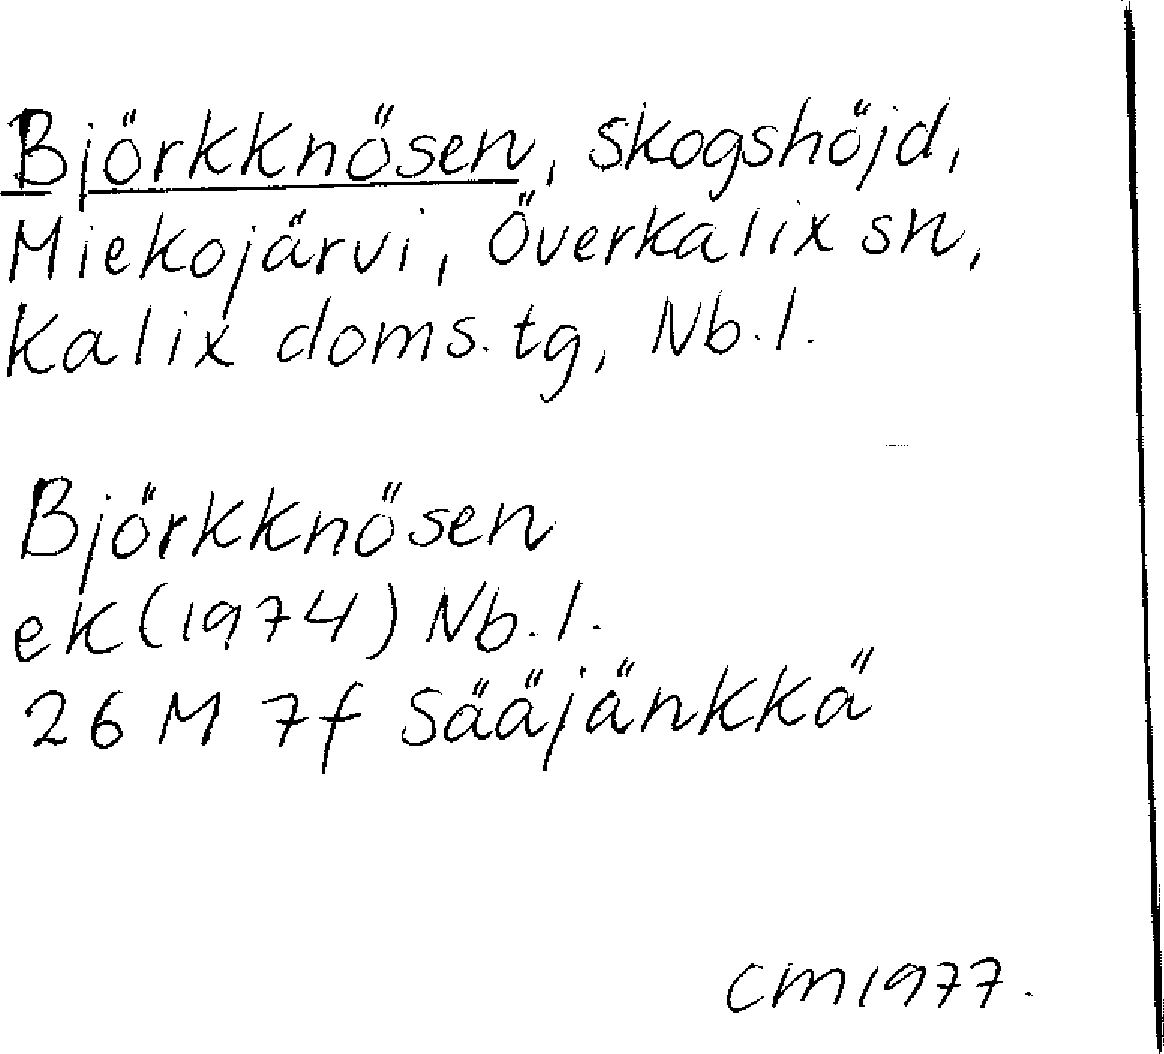 Björkknösen, skogshöjd,
Miekojärvi, Överkalix sn,
Kalix doms. tg, Nb.l.
Björkknösen
ek (1974) Nb.l.
26 M 7f Sääjänkkä
CM 1977.